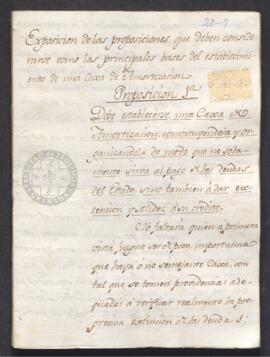 20-7
Exposicion de las proposiciones que deben conside
rarse como las principales basas del establecimi
ento de una Caxa de Amortizacion.
Proposicion 1ª
Debe establecerse una Caxa de
Amortizacion, constituyendola y or
ganizandola de modo que no sola
mente sirva al pago de las deudas
del Estado, sino tambien à dar ex
tension y solidez à su credito.
No faltará quien à primera
vista juzgue ser de poca importancia
que haya ó no semejante Caxa, con
tal que se tomen providencias ade
quadas à verificar realmente la pro
gresiva extincion de las deudas;